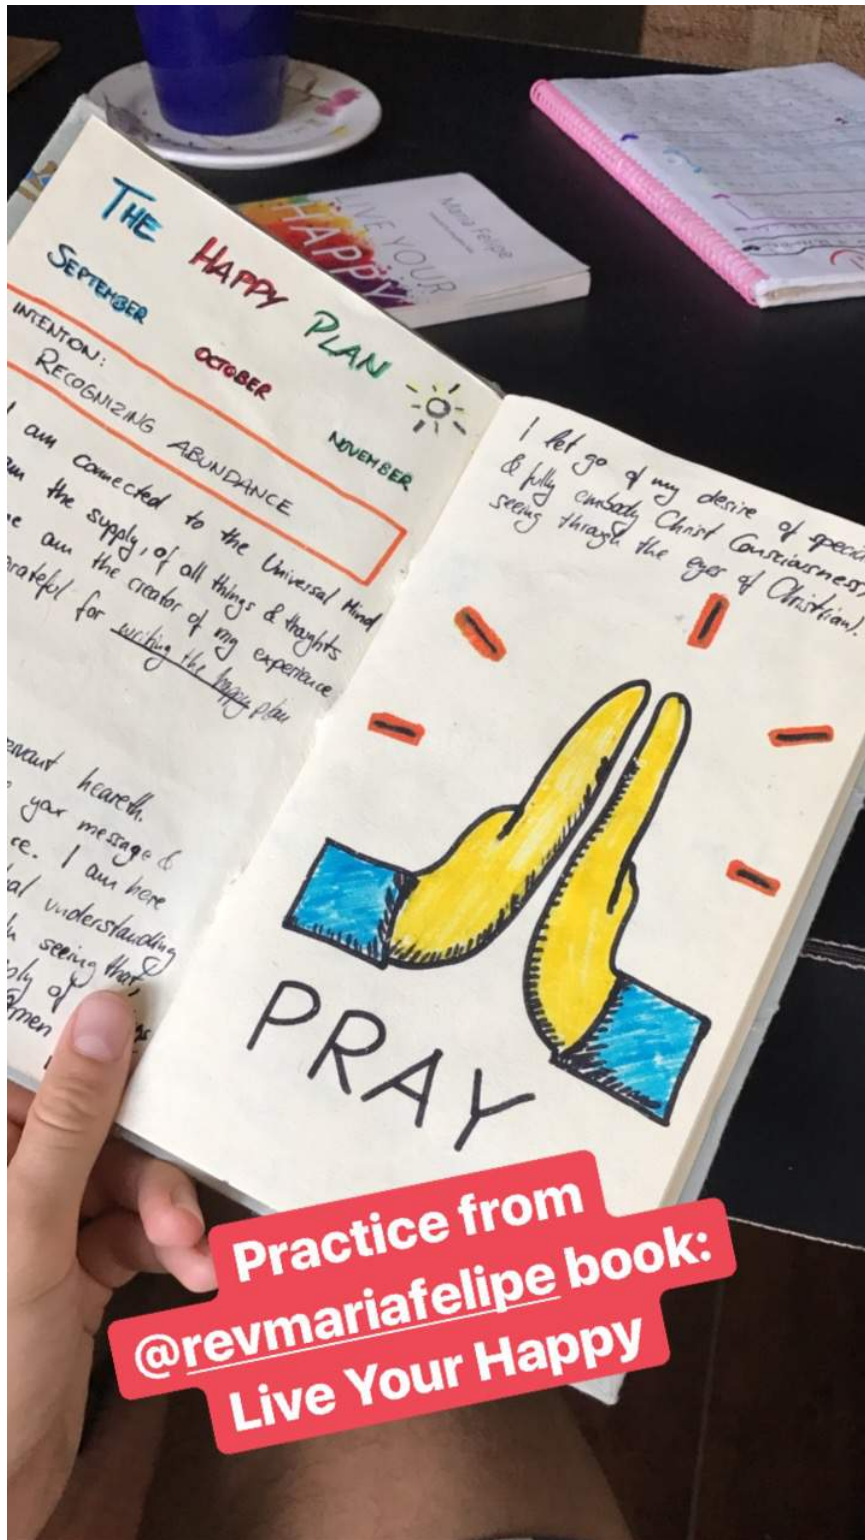 THE HAPPY PLAN
SEPTEMBER OCTOBER NOVEMBER
INTENTION:
RECOGNIZING ABUNDANCE
I am connected to the Universal Mind
the supply, of all things & thoughts
am the creator of my experience
grateful for writing the happy plan
heareth.
your message &
I am here
understanding
seeing that,
of
I let go of my desire of
& fully embody Christ Consciousness,
seeing through the eyes of Christ
PRAY
LIVE YOUR
HAPPY
Maria Felipe
Practice from
@revmariafelipe book:
Live Your Happy